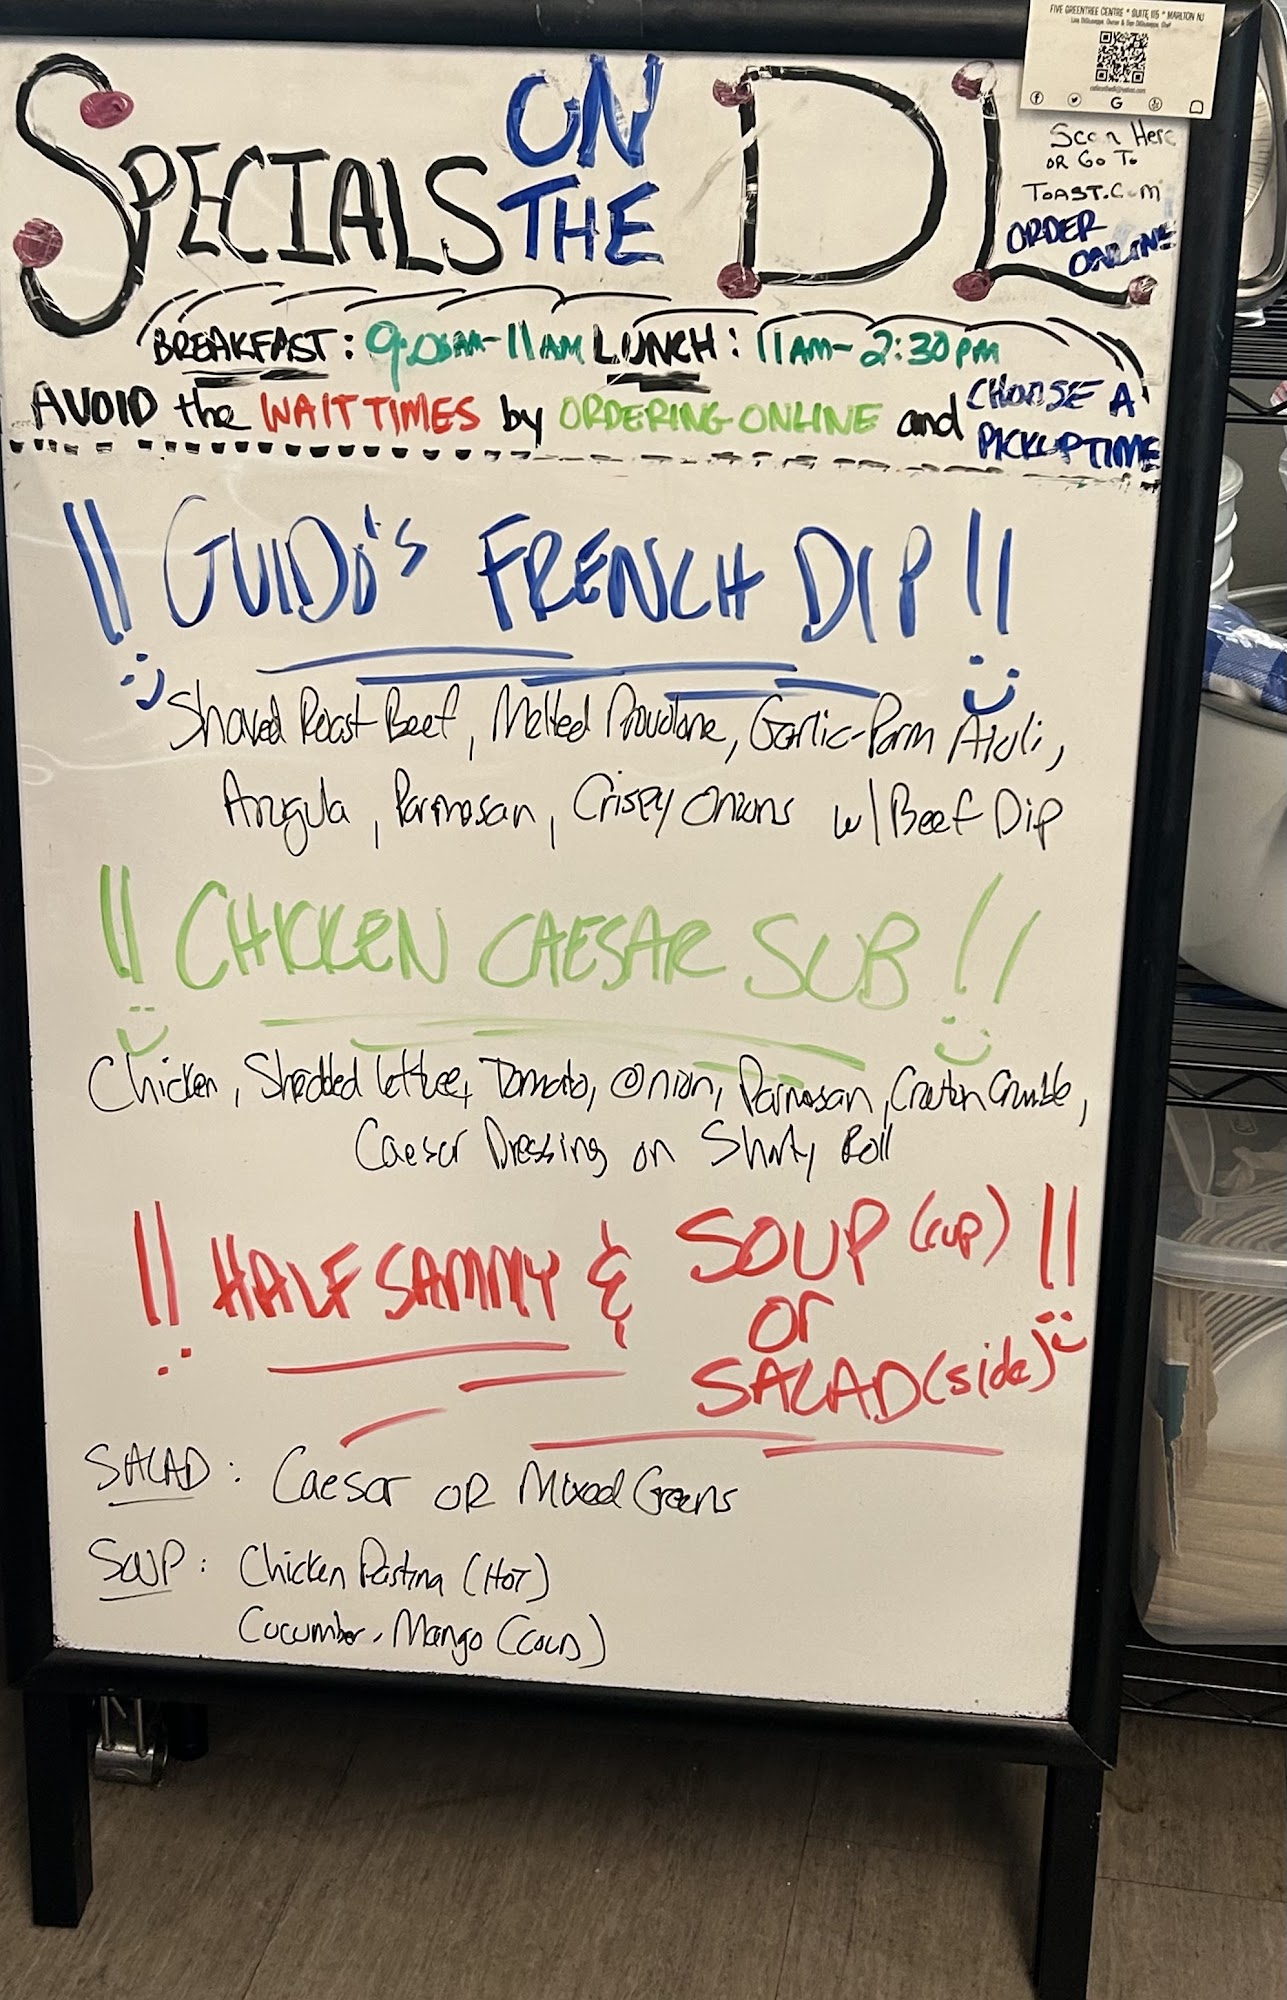 FIVE GREENTREE CENTRE * SUITE 115 * MARLTON NJ
SPECIALS ON THE DL
Scan Here
OR Go To
TOAST.Com
ORDER
ONLINE
BREAKFAST: 9:00AM-11AM LUNCH: 11AM-2:30PM
AVOID the WAIT TIMES by ORDERING ONLINE and CHOOSE A
PICKUP TIME
!! GUIDO's FRENCH DIP !!
Shaved Roast Beef, Melted Provolone, Garlic-Parm Aioli,
Arugula, Parmesan, Crispy Onions w/ Beef Dip
!! CHICKEN CAESAR SUB !!
Chicken, Shredded Lettuce, Tomato, Onion, Parmesan, Crouton Crumble,
Caesar Dressing on Shorty Roll
!! HALF SAMMY & SOUP (cup) !!
or
SALAD (side)
SALAD: Caesar OR Mixed Greens
SOUP: Chicken Pastina (HOT)
Cucumber, Mango (COLD)